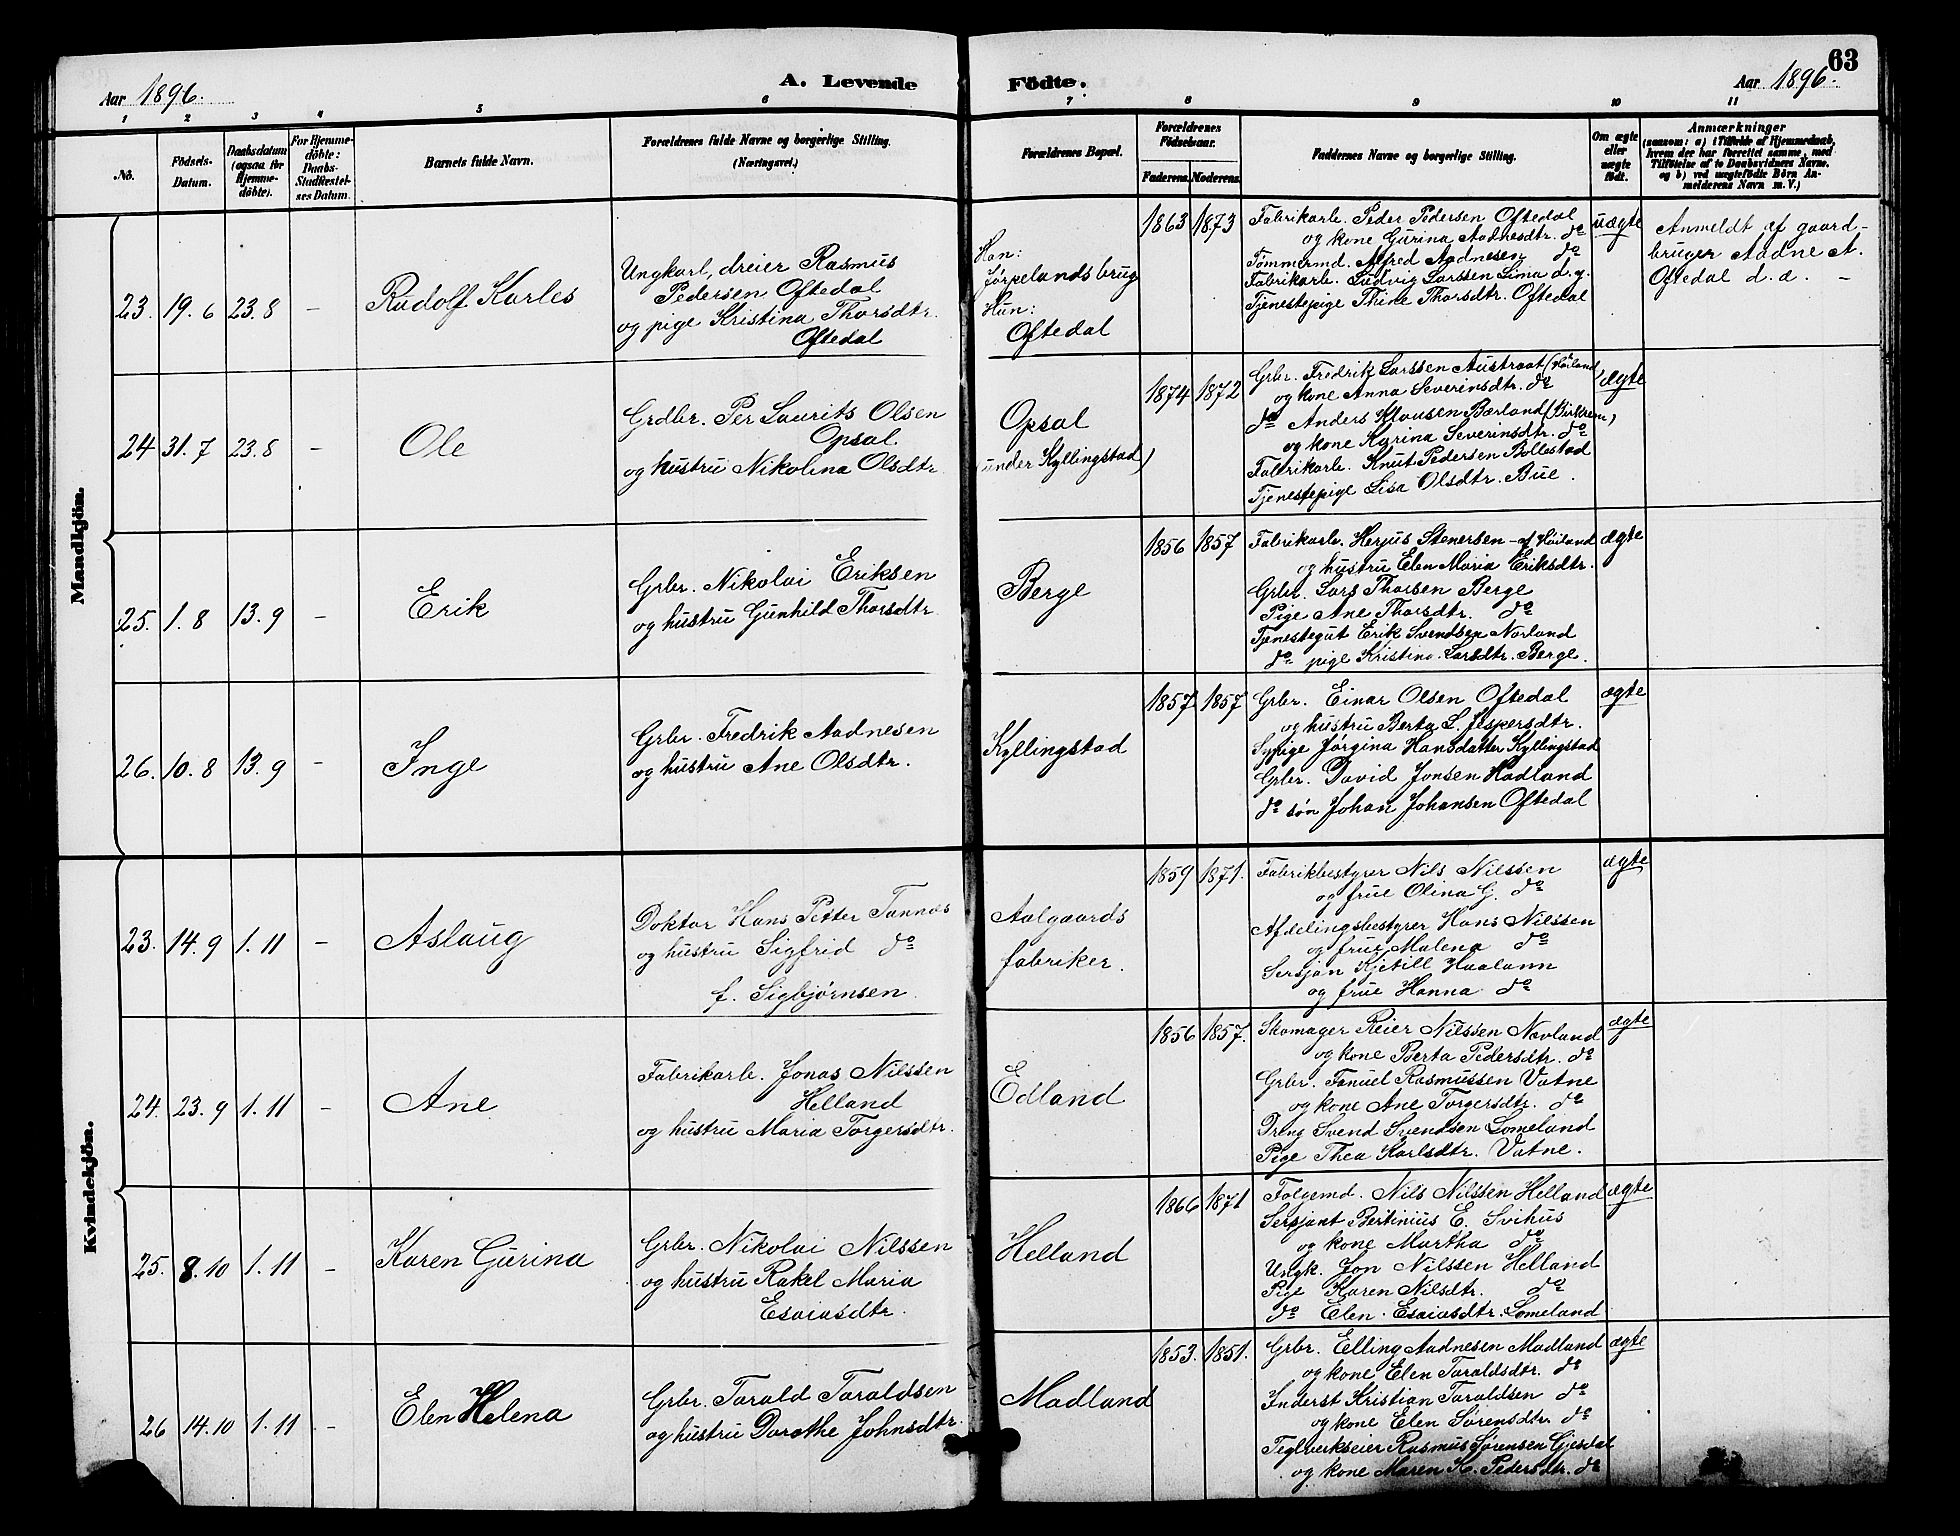 63
Aar 1896.
A. Levende
Födte.
Aar 1896.
1 2 3 4 5 6 7 8 9 10 11
No.
Födsels-Datum.
Daabsdatum (ogsaa for Hjemme-döbte).
For Hjemme-döbte: Daabs-Stadfestel-ses Datum.
Barnets fulde Navn.
Forældrenes fulde Navne og borgerlige Stilling.
(Næringsvei.)
Forældrenes Bopæl.
Forældrenes Födselsaar.
Faderens. Moderens.
Faddernes Navne og borgerlige Stilling.
Om ægte eller uægte födt.
Anmærkninger
(saasom: a) i Tilfælde af Hjemmedaab,
hvem der har forrettet samme, med
Tilföielse af to Daabsvidners Navne.
og b) ved uægtefödte Börn An-
melderens Navn m. V.)
Mandkjön.
23. 19.6 23.8 –
Rudolf Karles
Ungkarl, dreier Rasmus
Pedersen Oftedal
og pige Kristina Thorsdtr.
Oftedal
Han:
Jørpelandsbrug
Hun:
Oftedal
1863 1873
Fabrikarb. Peder Pedersen Oftedal
og kone Gurina Aadnesdtr. do
Tømmermd. Alfred Aadnesen do
Fabrikarb. Ludvig Larssen Lima d.y.
Tjenestepige Thine Thorsdtr. Oftedal
uægte
Anmeldt af gaard-
bruger Aadne A.
Oftedal d.a. –
24 31.7 23.8 –
Ole
Grdbr. Per Laurits Olsen
Opsal
og hustru Nikolina Olsdtr.
Opsal
(under Kyllingstad)
1874 1872
Grbr. Fredrik Larssen Austraat (Høiland)
og kone Anna Severinsdtr. do
do Anders Klausen Bærland (Birkrem)
og kone Karina Severinsdtr. do
Fabrikarb. Knut Pedersen Bollestad
Tjenestepige Lisa Olsdtr. Bue.
ægte
25. 1.8 13.9 –
Erik
Grbr. Nikolai Eriksen
og hustru Gunhild Thorsdtr.
Berge
1856 1857
Fabrikarb. Herjus Stenersen – af Høiland
og hustru Elen Maria Eriksdtr.
Grbr. Lars Thorsen Berge
Pige Ane Thorsdtr. do
Tjenestegut Erik Svendsen Norland
do pige Kristina Larsdtr. Berge.
ægte
26. 10.8 13.9 –
Inge
Grbr. Fredrik Aadnesen
og hustru Ane Olsdtr.
Kyllingstad
1857 1857
Grbr. Einar Olsen Oftedal
og hustru Berta L. Jespersdtr.
Sypige Jørgina Hansdatter Kyllingstad
Grbr. David Jonsen Hadland
do søn Johan Johansen Oftedal
ægte
Kvindekjön.
23. 14.9 1.11 –
Aslaug
Doktor Hans Petter Tannæs
og hustru Sigfrid do
f. Sigbjørnsen.
Aalgaards
fabriker.
1859 1871.
Fabrikbestyrer Nils Nilssen
og frue Olina G. do
Afdelingsbestyrer Hans Nilssen
og frue Malena do
Sersjan Kjetill Haalann
og frue Hanna do
ægte
24. 23.9 1.11 –
Ane
Fabrikarb. Jonas Nilssen
Helland
og hustru Maria Torgersdtr.
Edland
1856 1857.
Skomager Reier Nilssen Nevland
og kone Berta Pedersdtr. do
Grbr. Tanuel Rasmussen Vatne
og kone Ane Torgersdtr. do
Dreng Svend Svendsen Lomeland
Pige Thea Karlsdtr. Vatne.
ægte
25. 8.10 1.11 –
Karen Gurina
Grbr. Nikolai Nilssen
og hustru Rakel Maria
Esaiasdtr.
Helland
1866 1871
Folgemd. Nils Nilssen Helland
Sersjant Bertinius E. Svihus
og kone Martha do
Ungk. Jon Nilssen Helland
Pige Karen Nilsdtr. do
do Elen Esaiasdtr. Lomeland
ægte
26 14.10 1.11 –
Elen Helena
Grbr. Tarald Taraldsen
og hustru Dorothe Johnsdtr.
Madland
1853. 1851.
Grbr. Elling Aadnesen Madland
og kone Elen Taraldsdtr. do
Inderst Kristian Taraldsen do
og kone Elen Sørensdtr. do
Teglverkseier Rasmus Sørensen Gjesdal
og kone Maren K. Pedersdtr. do
ægte